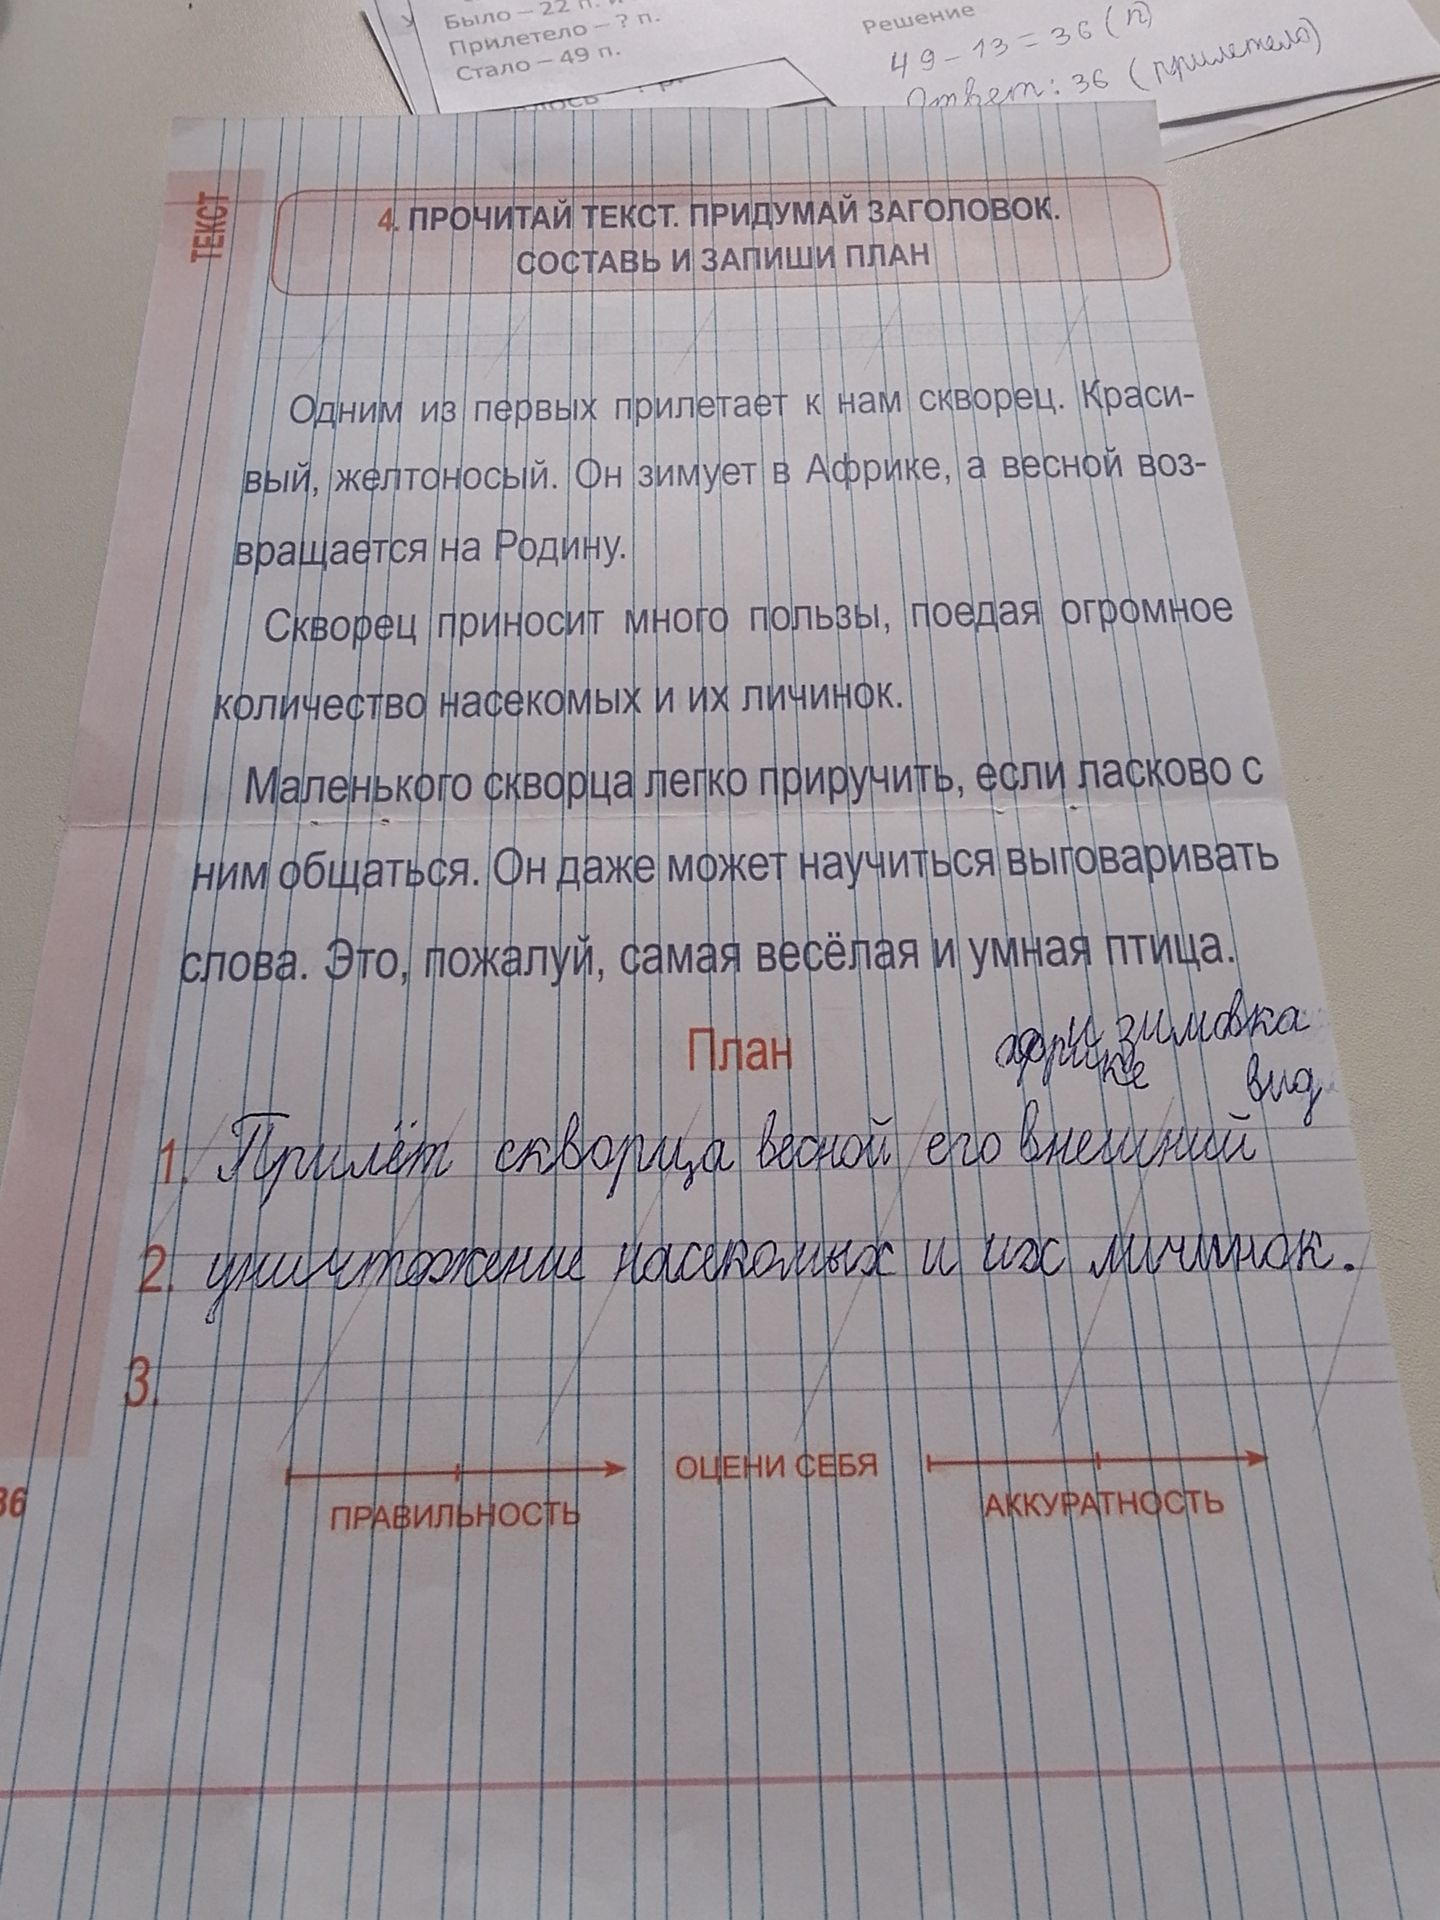 Было – 22 п.
Прилетело – ? п.
Стало – 49 п.
Решение
49 – 13 = 36 (п)
Ответ: 36 (прилетело)
ТЕКСТ
4. ПРОЧИТАЙ ТЕКСТ. ПРИДУМАЙ ЗАГОЛОВОК.
СОСТАВЬ И ЗАПИШИ ПЛАН
Одним из первых прилетает к нам скворец. Краси-
вый, желтоносый. Он зимует в Африке, а весной воз-
вращается на Родину.
Скворец приносит много пользы, поедая огромное
количество насекомых и их личинок.
Маленького скворца легко приручить, если ласково с
ним общаться. Он даже может научиться выговаривать
слова. Это, пожалуй, самая весёлая и умная птица.
План
зимовка
вид
1. Прилёт скворца весной его внешний
2. уничтожение насекомых и их личинок.
3.
ОЦЕНИ СЕБЯ
ПРАВИЛЬНОСТЬ
АККУРАТНОСТЬ
36